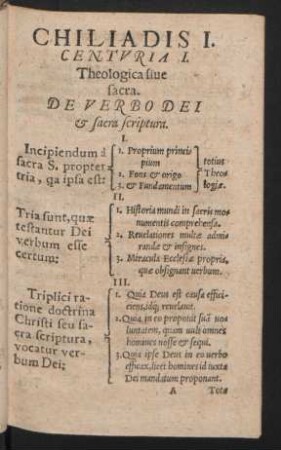 CHILIADIS I.
CENTVRIA I.
Theologica siue
sacra.
DE VERBO DEI
& sacra scriptura.
I.
Incipiendum à
sacra S. propter
tria, qa ipsa est:
1. Proprium princi-
pium
2. Fons & origo
3. & Fundamentum
totius
Theo
logiæ.
II.
Tria sunt, quæ
testantur Dei
verbum esse
certum:
1. Historia mundi in sacris mo-
numentis comprehensa.
2. Reuelationes multæ admi-
randæ & insignes.
3. Miracula Ecclesiæ propria,
quæ obsignant verbum.
III.
Triplici ra-
tione doctrina
Christi seu sa-
cra scriptura,
vocatur ver-
bum Dei;
1. Quia Deus est causa effici-
ens, idq; reuelauit.
2. Quia in eo proponit suã vo-
luntatem, quam vult omnes
homines nosse & sequi.
3. Quia ipse Deus in eo verbo
efficax, licet homines id iuxta
Dei mandatum proponant.
A Tota